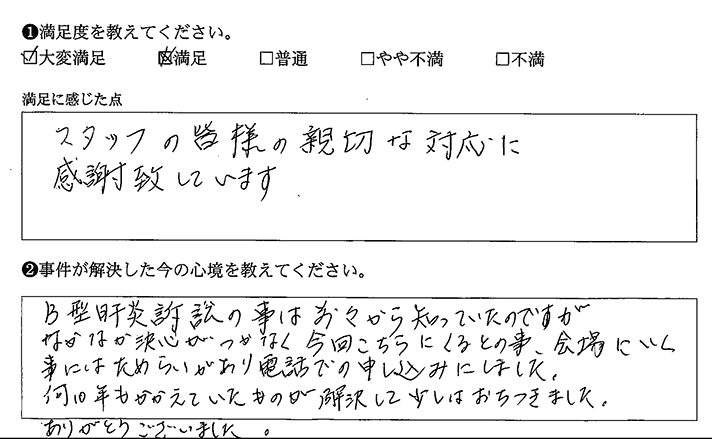 ❶満足度を教えてください。
☑大変満足 ☒満足 □普通 □やや不満 □不満
満足に感じた点
スタッフの皆様の親切な対応に
感謝致しています
❷事件が解決した今の心境を教えてください。
B型肝炎訴訟の事は前々から知っていたのですが
なかなか決心がつかなく今回こちらにくるとの事、会場にいく
事にはためらいがあり電話での申し込みにしました。
何10年もかかえていたものが解決して少しはおちつきました。
ありがとうございました。